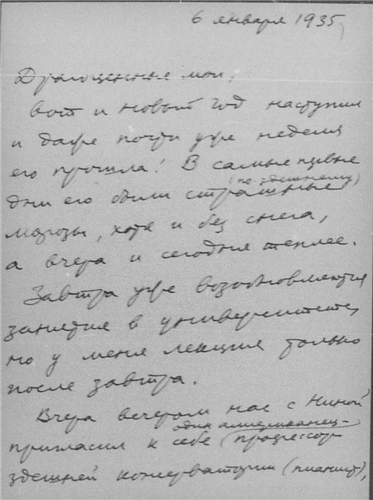 6 января 1935,
Драгоценные мои,
вот и новый год наступил
и даже почти уже неделя
его прошла! В самые первые
(по-здешнему)
дни его были страшные
морозы, хотя и без снега,
а вчера и сегодня теплее.
Завтра уже возобновляются
занятия в университете,
но у меня лекция только
после завтра.
Вчера вечером нас с Ниной
один американец-
пригласил к себе (профессор
здешней консерватории (пианист),